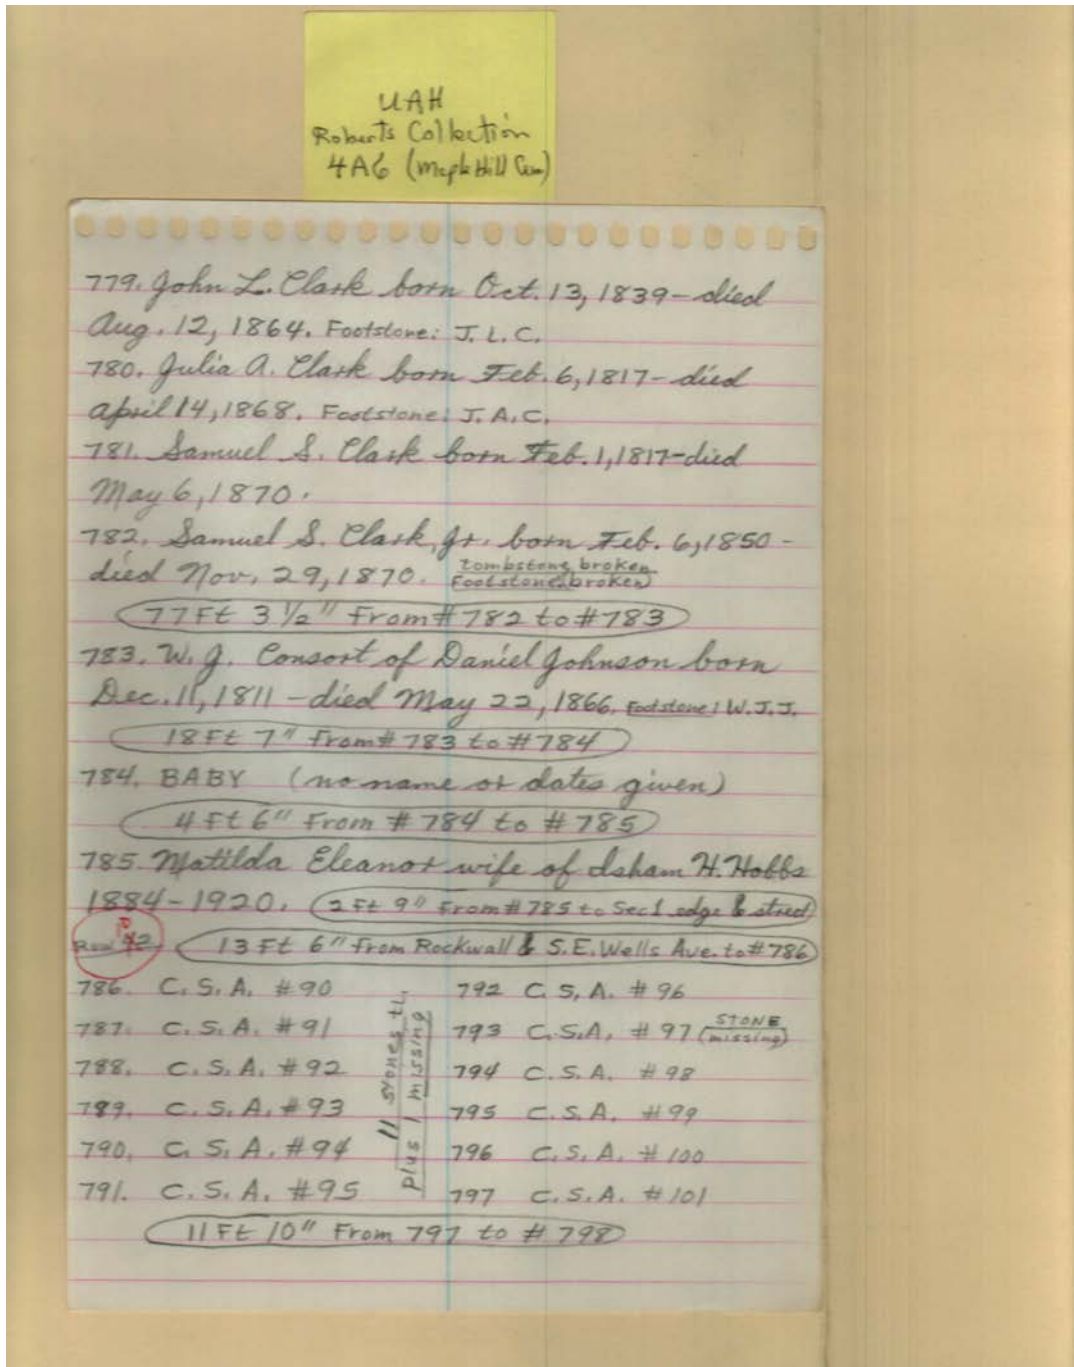 UAH
Roberts Collection
4A6 (Maple Hill Cem)
779. John L. Clark born Oct. 13, 1839 – died
Aug. 12, 1864. Footstone: J. L. C.
780. Julia A. Clark born Feb. 6, 1817 – died
April 14, 1868. Footstone: J. A. C.
781. Samuel S. Clark born Feb. 1, 1817 – died
May 6, 1870.
782. Samuel S. Clark, Jr. born Feb. 6, 1850 –
died Nov. 29, 1870. (Tombstone broken
Footstone broken)
77 Ft 3 1/2" From # 782 to # 783
783. W. J. Consort of Daniel Johnson born
Dec. 11, 1811 – died May 22, 1866. Footstone: W. J. J.
18 Ft 7" From # 783 to # 784
784. BABY (no name or dates given)
4 Ft 6" From # 784 to # 785
785. Matilda Eleanor wife of Isham H. Hobbs
1884 – 1920. 2 Ft 9" From # 785 to Sec 1 edge & street
Row
13 Ft 6" From Rockwall & S.E. Wells Ave. to # 786
786. C. S. A. # 90
787. C. S. A. # 91
788. C. S. A. # 92
789. C. S. A. # 93
790. C. S. A. # 94
791. C. S. A. # 95
11 stones tl.
plus 1 missing
792 C. S. A. # 96
793 C. S. A. # 97 (STONE
missing)
794 C. S. A. # 98
795 C. S. A. # 99
796 C. S. A. # 100
797 C. S. A. # 101
11 Ft 10" From 797 to # 798